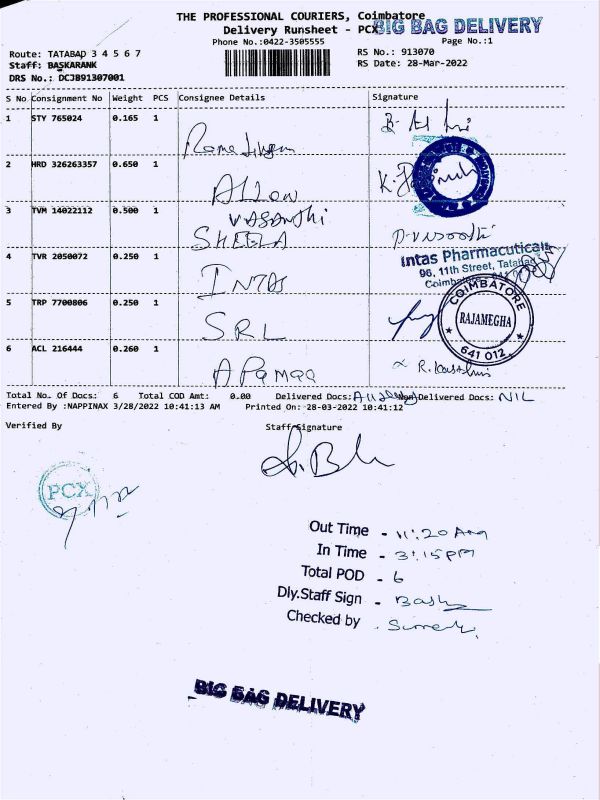 THE PROFESSIONAL COURIERS, Coimbatore
BIG BAG DELIVERY
Delivery Runsheet - PCX
Phone No.:0422-3505555
Page No.:1
Route: TATABAD 3 4 5 6 7
RS No.: 913070
Staff: BASKARANK
RS Date: 28-Mar-2022
DRS No.: DCJB91307001
S No Consignment No Weight PCS Consignee Details Signature
1 STY 765024 0.165 1
Rama
2 HRD 326263357 0.650 1
Allow
3 TVM 14022112 0.500 1
VASANTHI
SHEELA
Intas Pharmaceuticals
96, 11th Street, Tatabad
4 TVR 2050072 0.250 1
INTAS
COIMBATORE
RAJAMEGHA
641 012
5 TRP 7700806 0.250 1
SRL
6 ACL 216444 0.260 1
Total No. Of Docs: 6 Total COD Amt: 0.00 Delivered Docs: Non Delivered Docs: NIL
Entered By :NAPPINAX 3/28/2022 10:41:13 AM Printed On: 28-03-2022 10:41:12
Verified By Staff Signature
PCX
Out Time - 11:20 Am
In Time - 3:15 PM
Total POD - 6
Dly.Staff Sign -
Checked by
BIG BAG DELIVERY